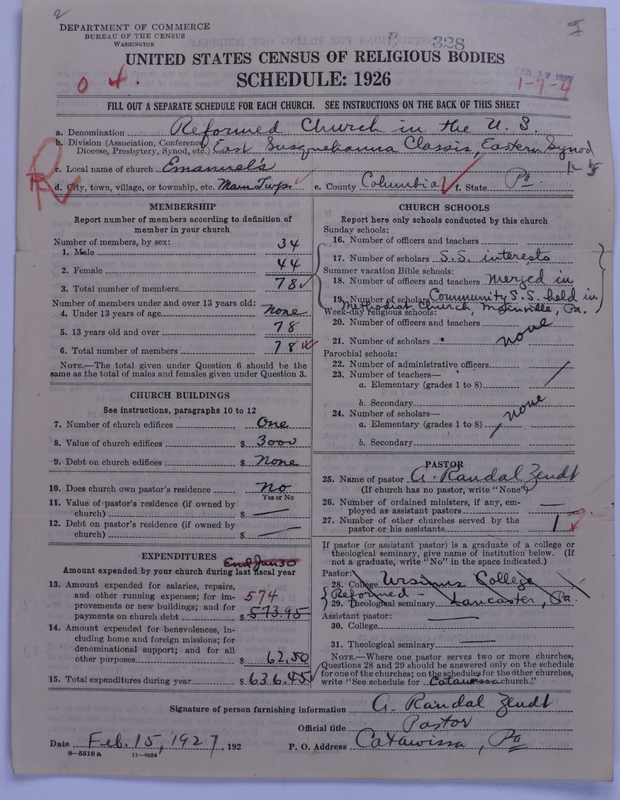 2
DEPARTMENT OF COMMERCE
BUREAU OF THE CENSUS
WASHINGTON
328
UNITED STATES CENSUS OF RELIGIOUS BODIES
SCHEDULE: 1926
0 4.
1-7-4
FILL OUT A SEPARATE SCHEDULE FOR EACH CHURCH. SEE INSTRUCTIONS ON THE BACK OF THIS SHEET
a. Denomination Reformed Church in the U.S.
b. Division (Association, Conference, Diocese, Presbytery, Synod, etc.) East Susquehanna Classis, Eastern Synod
R
c. Local name of church Emanual's
d. City, town, village, or township, etc. Main Twps. e. County Columbia f. State Pa.
MEMBERSHIP
Report number of members according to definition of
member in your church
Number of members, by sex:
1. Male 34
2. Female 44
3. Total number of members 78
Number of members under and over 13 years old:
4. Under 13 years of age None
5. 13 years old and over 78
6. Total number of members 78
NOTE.—The total given under Question 6 should be
same as the total of males and females given under Question 3.
CHURCH BUILDINGS
See instructions, paragraphs 10 to 12
7. Number of church edifices One
8. Value of church edifices $ 3000
9. Debt on church edifices $ None
10. Does church own pastor's residence No
Yes or No
11. Value of pastor's residence (if owned by
church) $ —
12. Debt on pastor's residence (if owned by
church) $ —
EXPENDITURES
End Jun 30
Amount expended by your church during last fiscal year
13. Amount expended for salaries, repairs,
and other running expenses; for im- 574
provements or new buildings; and for
payments on church debt $ 573.95
14. Amount expended for benevolences, in-
cluding home and foreign missions; for
denominational support; and for all
other purposes $ 62.50
15. Total expenditures during year $ 636.45
CHURCH SCHOOLS
Report here only schools conducted by this church
Sunday schools:
16. Number of officers and teachers
17. Number of scholars S.S. interests
Summer vacation Bible schools:
18. Number of officers and teachers merged in
19. Number of scholars Community S.S. held in
Methodist Church, Mainville, Pa.
Week-day religious schools:
20. Number of officers and teachers
21. Number of scholars none
Parochial schools:
22. Number of administrative officers
23. Number of teachers—
a. Elementary (grades 1 to 8)
b. Secondary
24. Number of scholars— none
a. Elementary (grades 1 to 8)
b. Secondary
PASTOR
25. Name of pastor A. Randal Zendt
(If church has no pastor, write "None")
26. Number of ordained ministers, if any, em-
ployed as assistant pastors —
27. Number of other churches served by the
pastor or his assistants 1
If pastor (or assistant pastor) is a graduate of a college or
theological seminary, give name of institution below. (If
not a graduate, write "No" in the space indicated.)
Pastor:
28. College Ursinus College
Reformed -
29. Theological seminary Lancaster, Pa.
Assistant pastor:
30. College
31. Theological seminary
NOTE.—Where one pastor serves two or more churches,
Questions 28 and 29 should be answered only on the schedule
for one of the churches; on the schedules for the other churches,
write "See schedule for Catawissa church."
Signature of person furnishing information A. Randal Zendt
Official title Pastor
Date Feb. 15, 1927, 192
P. O. Address Catawissa, Pa
8-5518 a 11-9054